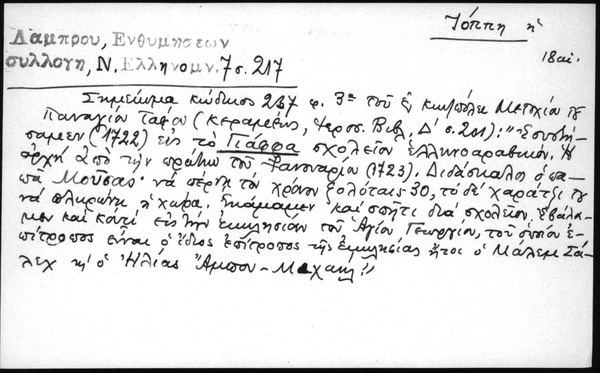 Ἰόππη ἡ
18 αἰ.
Λάμπρου, Ενθυμησεων
συλλογη, Ν. Ελληνομν. 7 σ. 217
Σημείωμα κώδικος 237 φ. 3α τοῦ ἐν Κωνπόλει Μετοχίου τοῦ
Παναγίου Τάφου (Κεραμεύς, Ἱεροσ. Βιβλ. Δ' σ. 201): "Ἐσυστή-
σαμεν (1722) εἰς τὸ Γιάφφα σχολεῖον ἑλληνοαραβικόν. Ἡ
ἀρχὴ ἀπὸ τὴν πρώτην τοῦ Ἰανουαρίου (1723). Διδάσκαλος ὁ πα-
πᾶ Μούσας· νὰ πέρνῃ τὸν χρόνον ζολόταις 30, τὸ δὲ χαράτζι του
νὰ πληρώνῃ ἡ χώρα. Ἐκάμαμεν καὶ σπῆτι διὰ σχολεῖον. Ἐβάλα-
μεν καὶ κουτὶ εἰς τὴν ἐκκλησίαν τοῦ Ἁγίου Γεωργίου, τοῦ ὁποίου ἐ-
πίτροπος εἶναι ὁ ἴδιος ἐπίτροπος τῆς ἐκκλησίας ἤτοι ὁ Μάλεμ Σά-
λεχ κι' ὁ Ἠλίας Ἄμπου-Μιχαήλ"